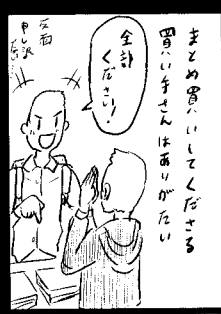 まとめ買いしてくださる
買い手さんはありがたい
全部
ください!
反面
申し訳